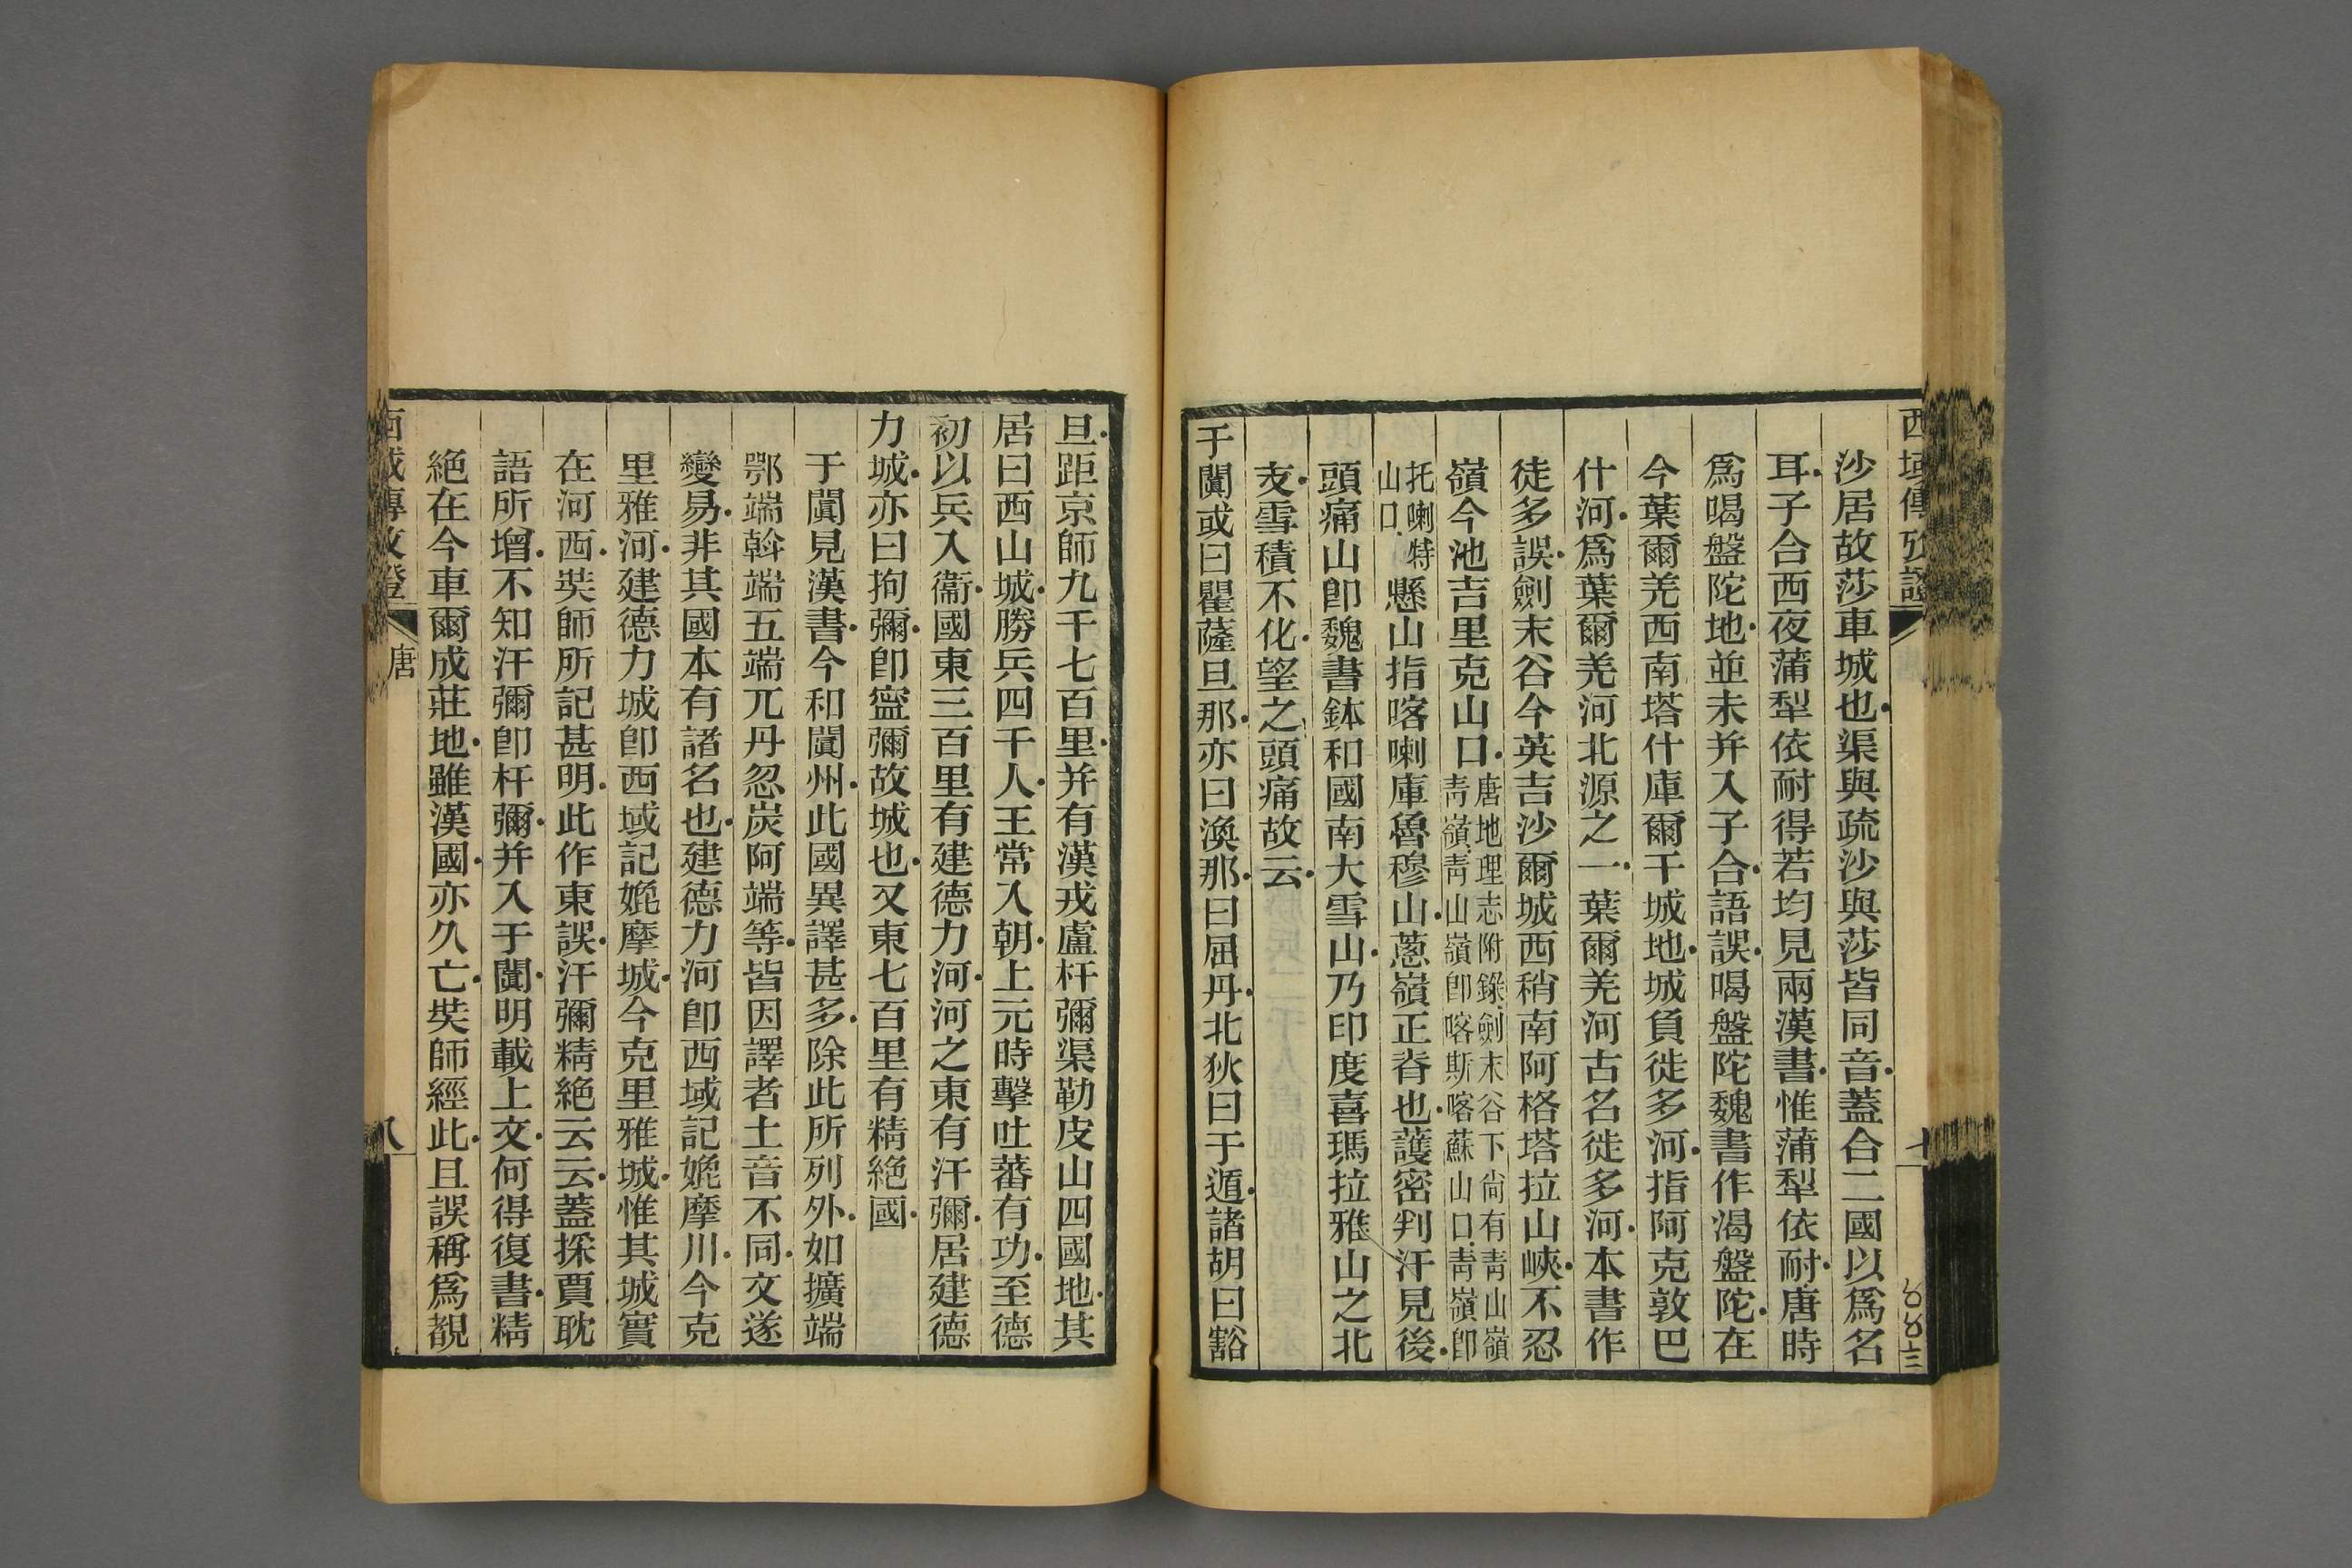 西域傳攷證
七
沙居故莎車城也渠與疏沙與莎皆同音蓋合二國以爲名
耳子合西夜蒲犁依耐得若均見兩漢書惟蒲犁依耐唐時
爲喝盤陀地並未并入子合語誤喝盤陀魏書作渴盤陀在
今葉爾羌西南塔什庫爾干城地城負徙多河指阿克敦巴
什河爲葉爾羌河北源之一葉爾羌河古名徙多河本書作
徒多誤劍末谷今英吉沙爾城西稍南阿格塔拉山峽不忍
嶺今池吉里克山口唐地理志附錄劍末谷下尙有靑山嶺
靑嶺靑山嶺卽喀斯喀蘇山口靑嶺卽
托喇特
山口懸山指喀喇庫魯穆山蔥嶺正脊也護密判汗見後
頭痛山卽魏書鉢和國南大雪山乃印度喜瑪拉雅山之北
支雪積不化望之頭痛故云
于闐或曰瞿薩旦那亦曰渙那曰屈丹北狄曰于遁諸胡曰豁
旦距京師九千七百里并有漢戎盧杆彌渠勒皮山四國地其
居曰西山城勝兵四千人王常入朝上元時擊吐蕃有功至德
初以兵入衞國東三百里有建德力河河之東有汗彌居建德
力城亦曰拘彌卽寍彌故城也又東七百里有精絕國
于闐見漢書今和闐州此國異譯甚多除此所列外如擴端
鄂端斡端五端兀丹忽炭阿端等皆因譯者土音不同文遂
變易非其國本有諸名也建德力河卽西域記媲摩川今克
里雅河建德力城卽西域記媲摩城今克里雅城惟其城實
在河西奘師所記甚明此作東誤汗彌精絕云云蓋採賈耽
語所增不知汗彌卽杆彌并入于闐明載上文何得復書精
絕在今車爾成莊地雖漢國亦久亡奘師經此且誤稱爲覩
西域傳攷證
唐
八